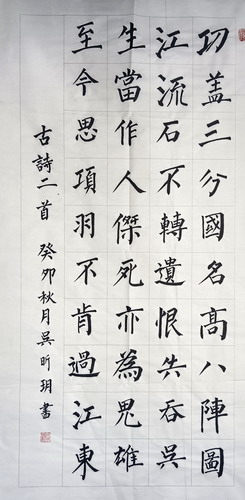 功蓋三分國名高八陣圖
江流石不轉遺恨失吞吳
生當作人傑死亦為鬼雄
至今思項羽不肯過江東
古詩二首 癸卯秋月吳昕玥書